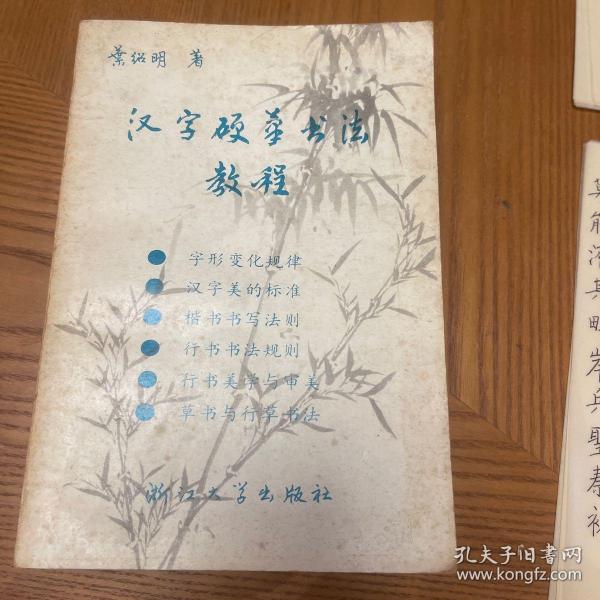 葉绍明 著
汉字硬笔书法
教程
字形变化规律
汉字美的标准
楷书书写法则
行书书法规则
行书美学与审美
草书与行草书法
浙江大学出版社
莫能济其畔岸兵聖泰初
孔夫子旧书网
www.kongfz.com